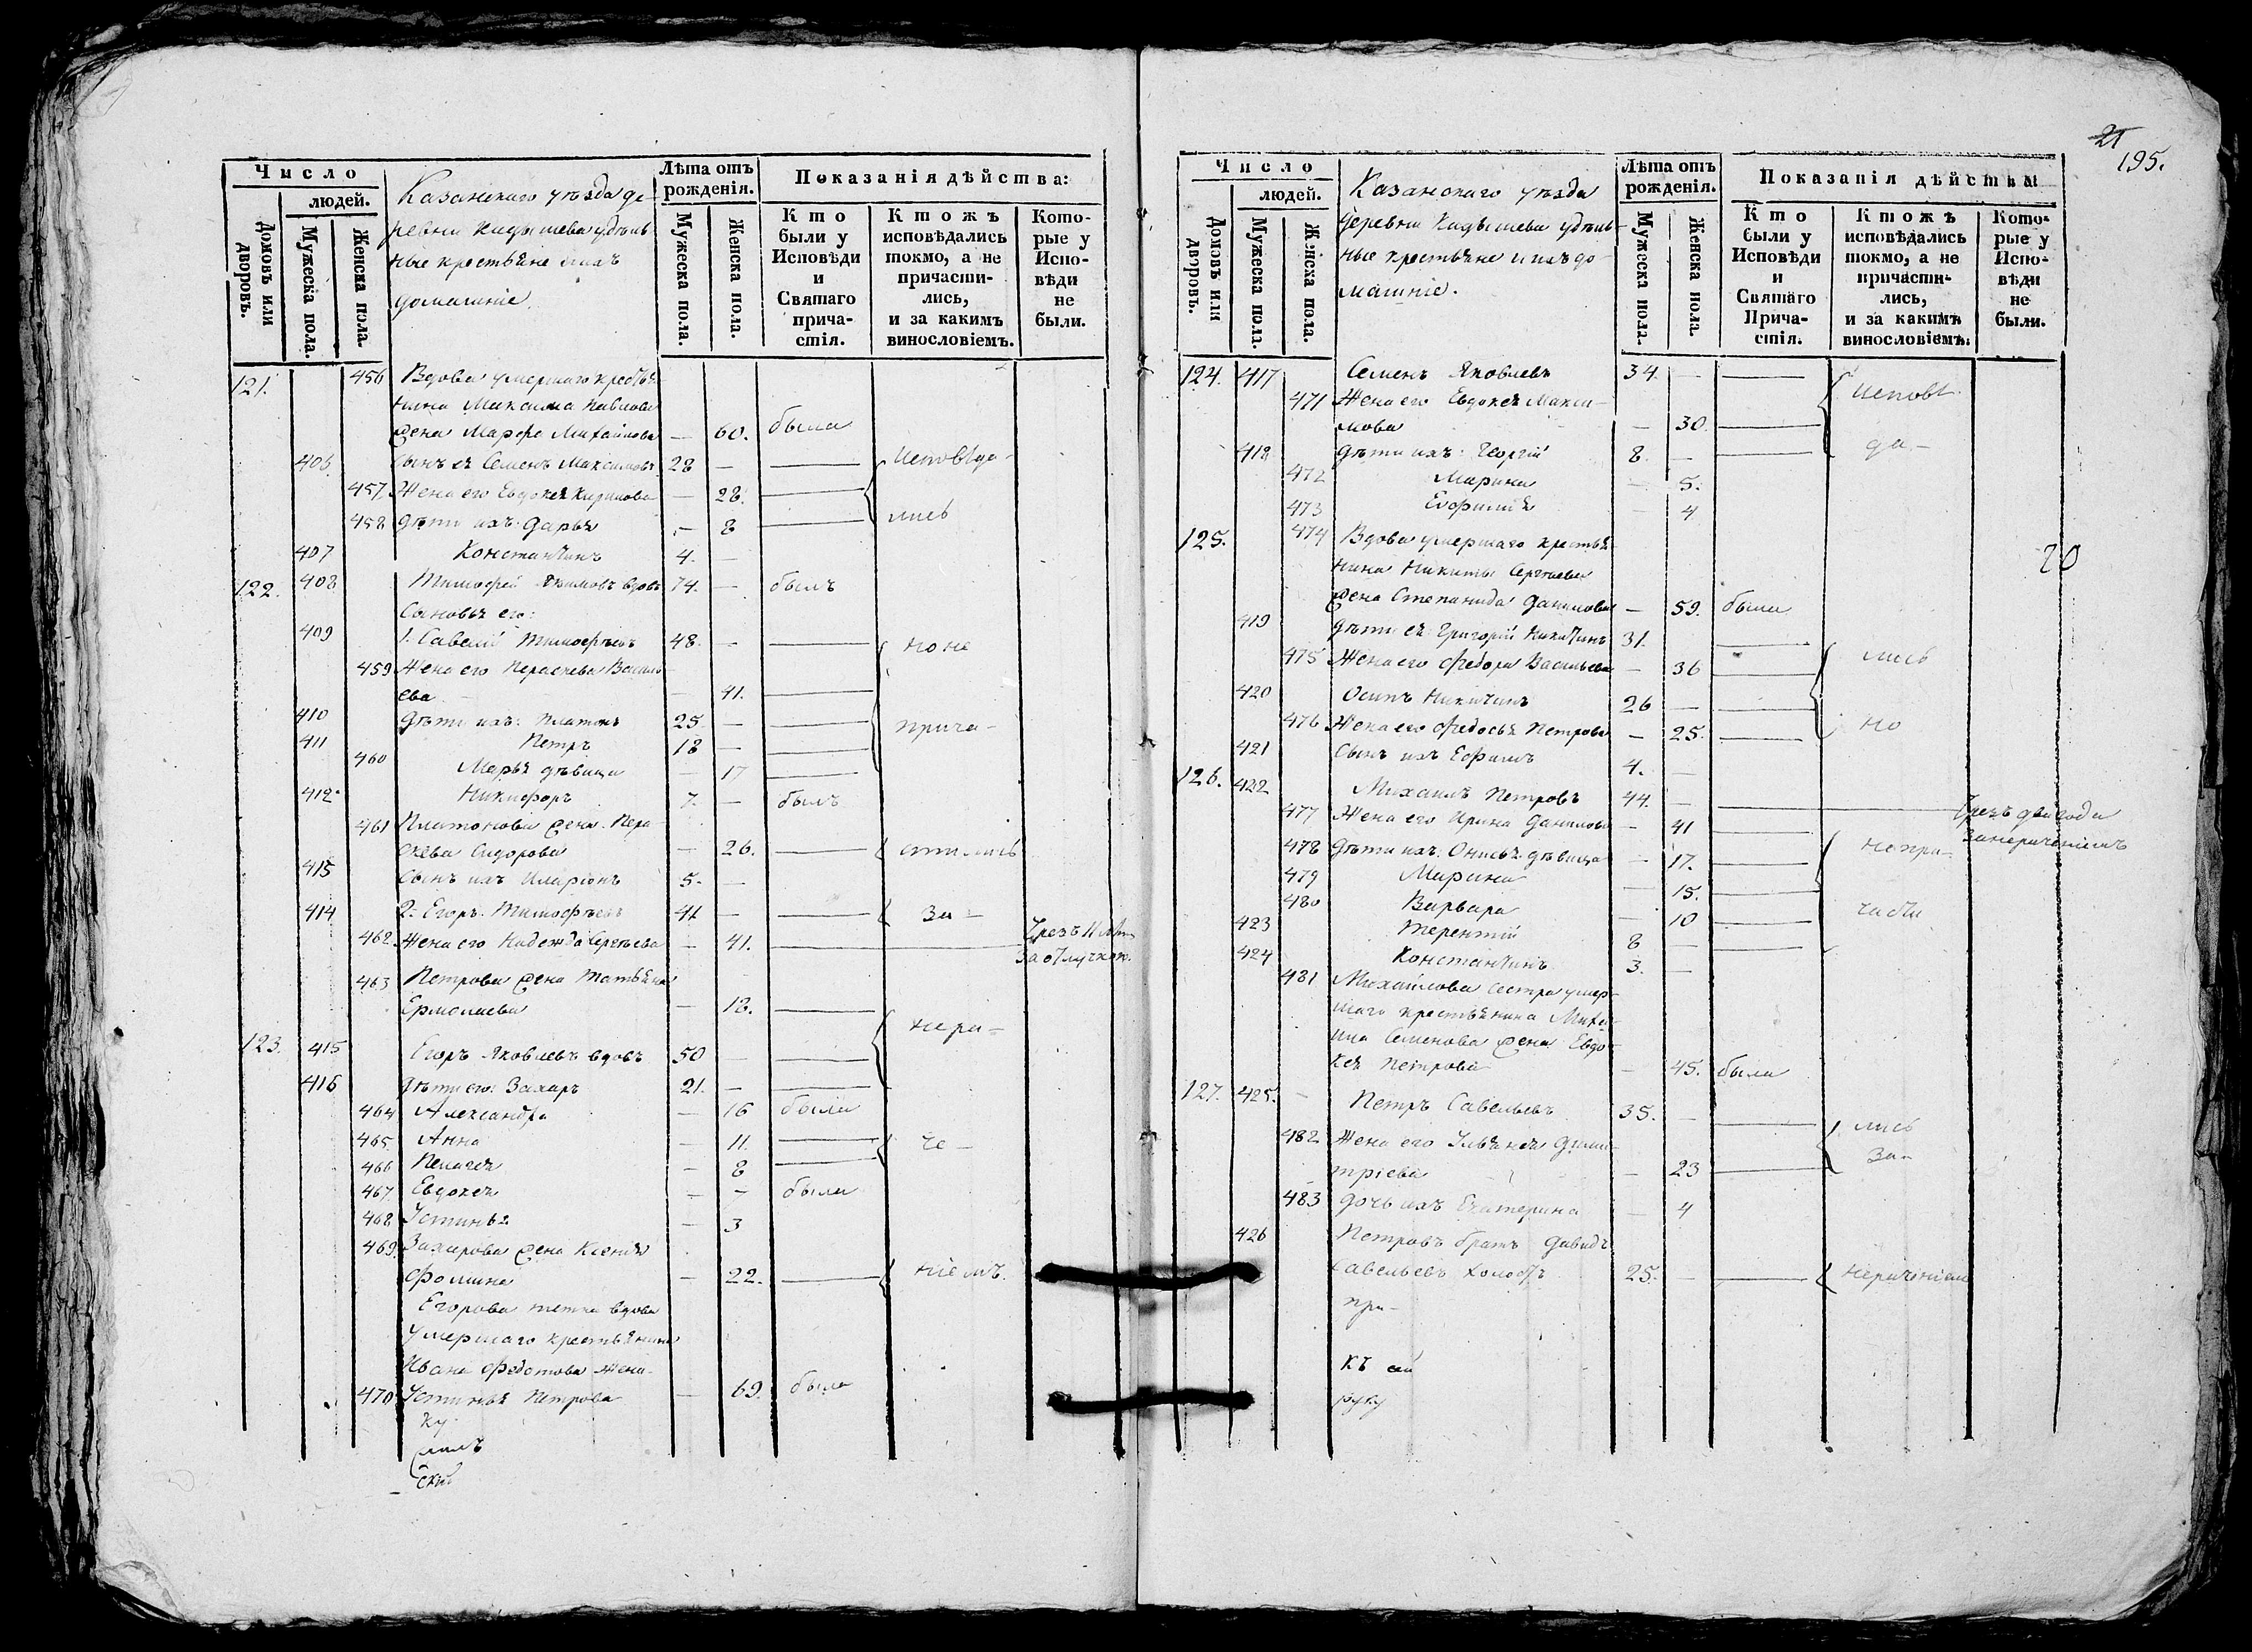 Число
людей.
Домовъ или дворовъ.
Мужеска пола.
Женска пола.
Казанскаго уѣзда де-
ревни Кадышева удѣль
ные крестьяне и ихъ
домашніе.
Лѣта отъ рожденія.
Мужеска пола.
Женска пола.
Показанія дѣйства:
Кто были у Исповѣди и Святаго причастія.
Ктожъ исповѣдались токмо, а не причасти-лись, и за какимъ винословіемъ.
Кото-рые у Испо-вѣди не были.
121. 456 Вдова умершаго крестья
нина Максима Павлова
жена Марфа Михайлова — 60. была
406 Сынъ ея Семенъ Максимовъ 28 — — Исповѣда-
457 Жена его Евдокея Кирилова — 28. —
458 Дѣти ихъ: Дарья — 8 — лись
407 Константинъ 4. —
122. 408 Тимофей Якимовъ вдовъ 74. — былъ
Сыновья его:
409 1. Савелій Тимофѣевъ 48. — — но не
459 Жена его Параскева Василь
ева — 41. —
410 Дѣти ихъ: Платонъ 25 — — прича-
411 Петръ 18 — —
460 Марья дѣвица — 17 —
412 Никифоръ 7. — былъ
461 Платонова жена Пара-
скева Сидорова — 26. — стились
413 Сынъ ихъ Иларіонъ 5. —
414 2. Егоръ Тимофѣевъ 41 — — за-
462. Жена его Надежда Сергѣева — 41. — Чрезъ
за отлучкою.
463 Петрова жена Татьяна
Ермолаева — 18. —
нера-
123. 415 Егоръ Яковлевъ вдовъ 50 — —
416 Дѣти его: Захаръ 21. — —
464 Александра — 16 была
465 Анна — 11. — че-
466 Пелагея — 8 —
467. Евдокея — — была
468 Устинья — 3
469. Захарова жена Ксенія
Фомина — 22. — ніемъ.
Егорова тетка вдова
умершаго крестьянина
Ивана Федотова жена
470 Устинья Петрова — 69. была
ку
скій
21
195.
Число
людей.
Домовъ или дворовъ.
Мужеска пола.
Женска пола.
Казанскаго уѣзда
деревни Кадышева удѣль-
ные крестьяне и ихъ до-
машніе.
Лѣта отъ рожденія.
Мужеска пола.
Женска пола.
Показанія дѣйства
Кто были у Исповѣди и Святаго Прича-стія.
Ктожъ исповѣдались токмо, а не причасти-лись, и за какимъ винословіемъ.
Кото-рые у Испо-вѣди не были.
124. 417 Семенъ Яковлевъ 34. — — Исповѣ-
471 Жена его Евдокея Макси-
мова — 30. —
418 Дѣти ихъ: Георгій 8. — — да-
472 Марина — 5.
473 Евфимія — 4
125. 474 Вдова умершаго крестья
нина Никиты Сергѣева
20
жена Степанида Данилова — 59. была
419 Дѣти ея: Григорій Никитинъ 31. —
475 Жена его Федора Васильева — 36 — лись
420 Осипъ Никитинъ 26 — —
476 Жена его Федосья Петрова — 25. — но
421 Сынъ ихъ Ефимъ 4. —
126. 422 Михаилъ Петровъ 44. — — Чрезъ два года
за нераченіемъ
477 Жена его Ирина Данилова — 41 —
478 Дѣти ихъ: Онисья дѣвица — 17. — не при-
479 Марина — 15. —
480 Варвара — 10 — части
423 Терентій 8 — —
424 Константинъ 3. —
481 Михайлова сестра умер-
шаго крестьянина Миха-
ила Семенова жена Евдо-
кея Петрова — 45. была
127. 425. Петръ Савельевъ 35. — — лись
482 Жена его Ульянея Дими-
тріева — 23 — за-
483 Дочь ихъ Екатерина — 4
426 Петровъ братъ Давидъ
Савельевъ холостъ 25. — — нераченіемъ
при-
къ сей
руку